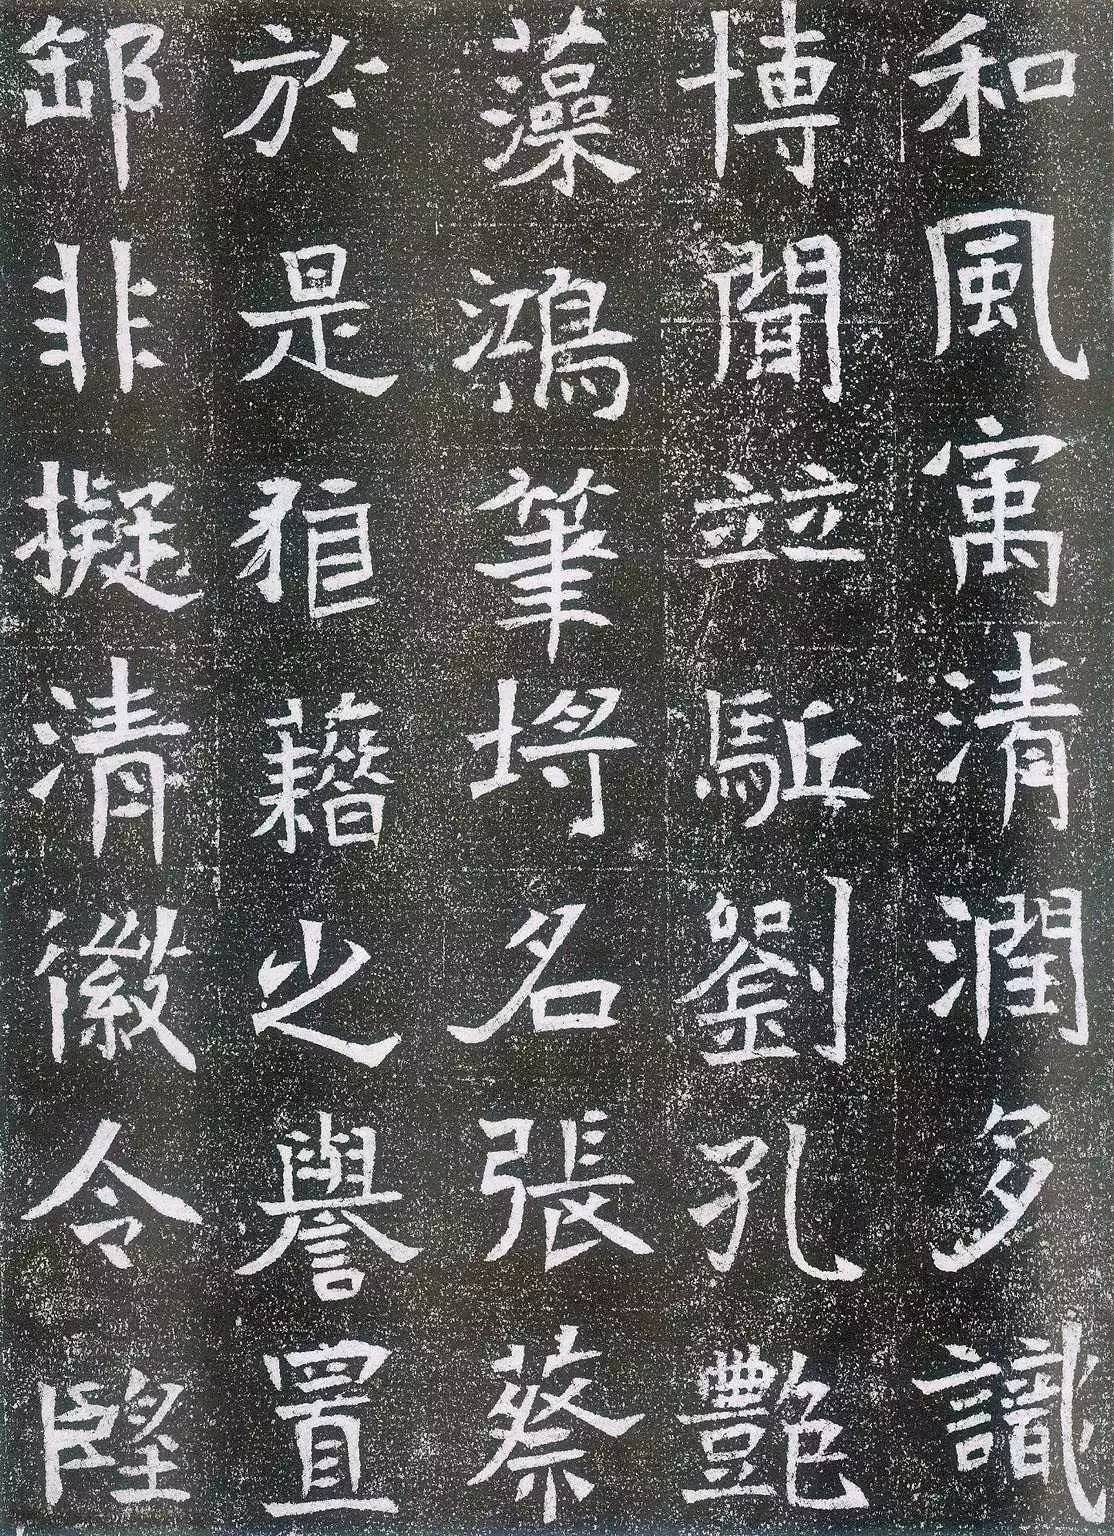 和風寓清潤多識
博聞竝駈劉孔艷
藻鴻筆埒名張蔡
於是藉之譽置
非擬清徽令